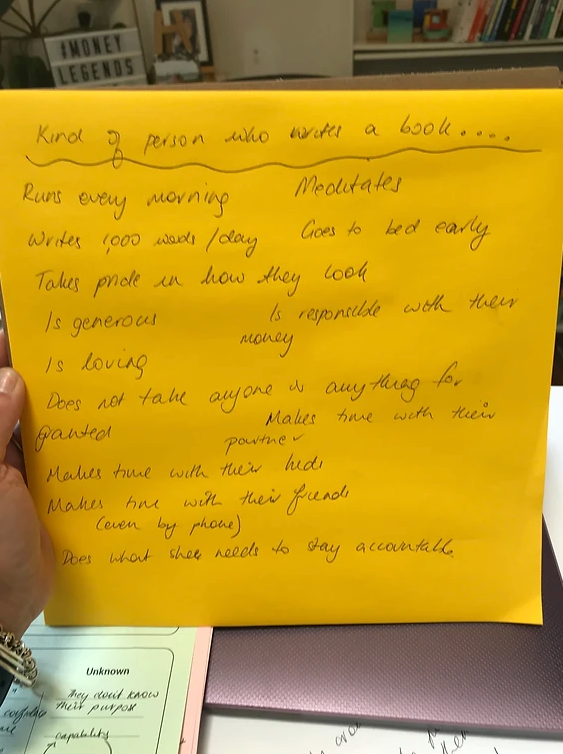 #MONEY
LEGENDS
Kind of person who writes a book....
Runs every morning
Meditates
Writes 1,000 words/day
Goes to bed early
Takes pride in how they look
Is generous
Is responsible with their
money
Is loving
Does not take anyone or anything for
granted
Makes time with their
partner
Makes time with their kids
Makes time with their friends
(even by phone)
Does what she needs to stay accountable
Unknown
They don't know
their purpose
capability